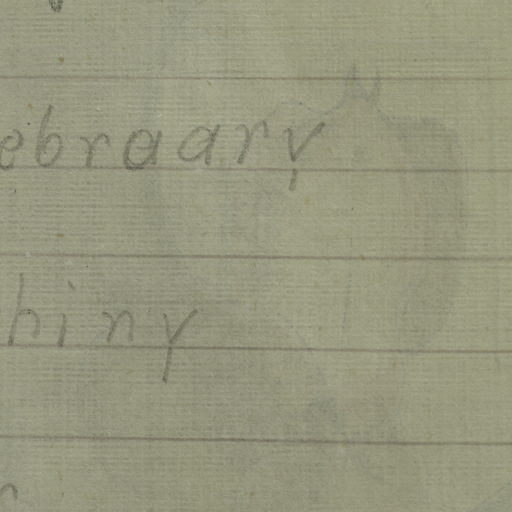 ebraary
hiny